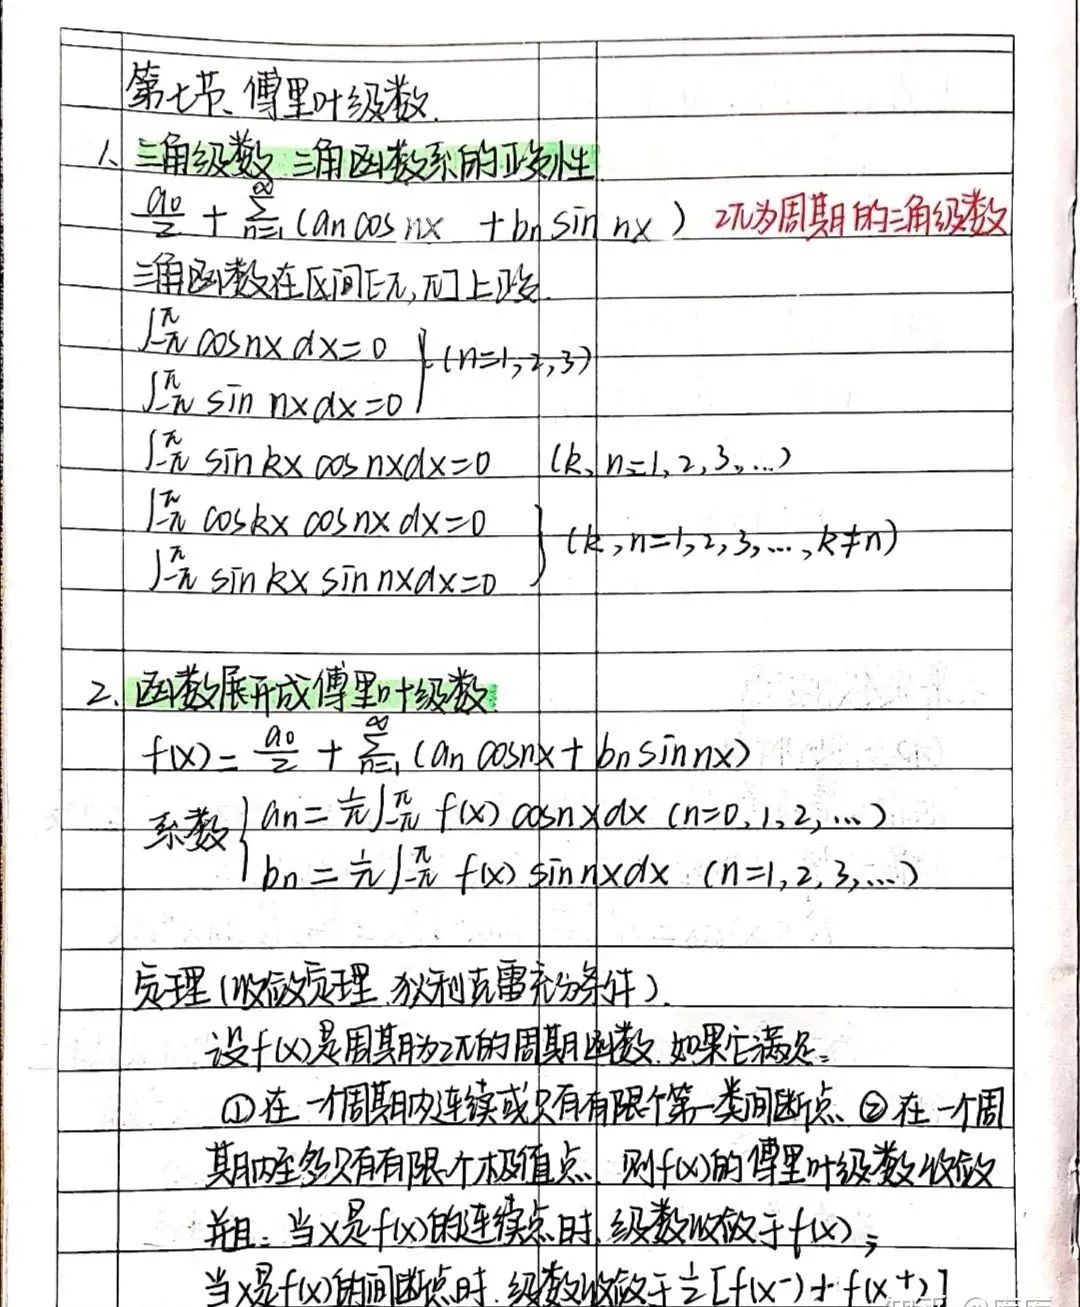 第七节、傅里叶级数.
1、三角级数 三角函数系的正交性
a₀/2 + ∑_{n=1}^{∞} (aₙ cos nx + bₙ sin nx) 2π为周期的三角级数
三角函数在区间[-π, π]上正交.
∫_{-π}^{π} cos nx dx = 0
∫_{-π}^{π} sin nx dx = 0 } (n=1, 2, 3)
∫_{-π}^{π} sin kx cos nx dx = 0 (k, n=1, 2, 3, ...)
∫_{-π}^{π} cos kx cos nx dx = 0
∫_{-π}^{π} sin kx sin nx dx = 0 } (k, n=1, 2, 3, ..., k≠n)
2、函数展开成傅里叶级数
f(x) = a₀/2 + ∑_{n=1}^{∞} (aₙ cos nx + bₙ sin nx)
系数 { aₙ = 1/π ∫_{-π}^{π} f(x) cos nx dx (n=0, 1, 2, ...)
bₙ = 1/π ∫_{-π}^{π} f(x) sin nx dx (n=1, 2, 3, ...)
定理(收敛定理、狄利克雷充分条件).
设f(x)是周期为2π的周期函数.如果它满足:
①在一个周期内连续或只有有限个第一类间断点、②在一个周
期内至多只有有限个极值点、则f(x)的傅里叶级数收敛
并且:当x是f(x)的连续点时.级数收敛于f(x);
当x是f(x)的间断点时.级数收敛于½[f(x⁻)+f(x⁺)]